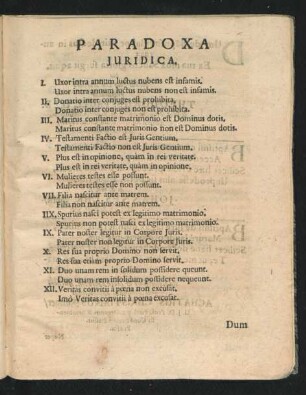 PARADOXA
JURIDICA.
I. Uxor intra annum luctus nubens est infamis.
Uxor intra annum luctus nubens non est infamis.
II. Donatio inter conjuges est prohibita.
Donatio inter conjuges non est prohibita.
III. Maritus constante matrimonio est Dominus dotis.
Maritus constante matrimonio non est Dominus dotis.
IV. Testamenti Factio est Juris Gentium.
Testamenti Factio non est Juris Gentium.
V. Plus est in opinione, quam in rei veritate.
Plus est in rei veritate, quam in opinione.
VI. Mulieres testes esse possunt.
Mulieres testes esse non possunt.
VII. Filia nascitur ante matrem.
Filia non nascitur ante matrem.
IIX. Spurius nasci potest ex legitimo matrimonio.
Spurius non potest nasci ex legitimo matrimonio.
IX. Pater noster legitur in Corpore Juris.
Pater noster non legitur in Corpore Juris.
X. Res sua proprio Domino non servit.
Res sua etiam proprio Domino servit.
XI. Duo unam rem in solidum possidere queunt.
Duo unam rem in solidum possidere nequeunt.
XII. Veritas convitii à pœna non excusat.
Imò Veritas convitii à pœna excusat.
Dum